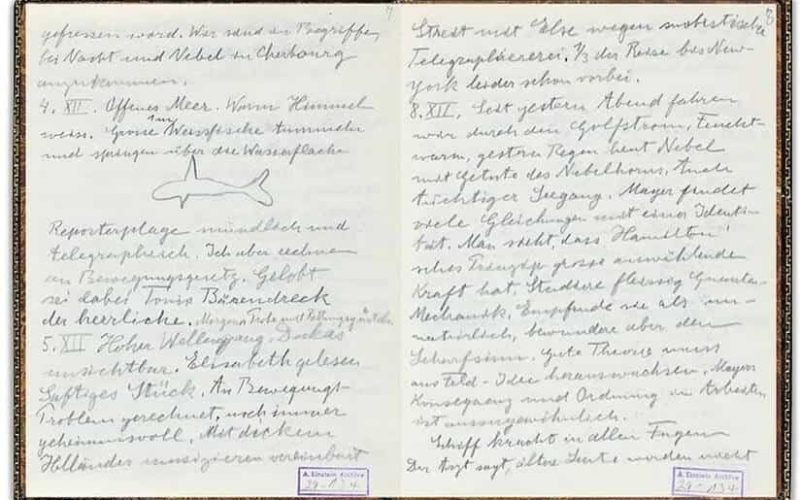 gefressen ward. Wir sind im Begriffe,
bei Nacht und Nebel in Cherbourg
anzukommen.
4. XII. Offenes Meer. Warm Himmel
weiss. Grosse Weissfische tummeln
und springen über die Wasserfläche
Reporterplage mündlich und
telegraphisch. Ich aber rechnen
an Bewegungsgesetz. Gelobt
sei dabei Toni's Bärendreck
der herrliche.
5. XII Hoher Wellengang. Duckas
unsichtbar. Elisabeth gelesen
Saftiges Stück. An Bewegungs-
Problem gerechnet, noch immer
geheimnisvoll. Mit dickem
Holländer musizieren vereinbart
A. Einstein Archive
29-134
8
Streit mit Else wegen
Telegraphiererei. 1/3 der Reise bis New-
york leider schon vorbei.
8. XII. Seit gestern Abend fahren
wir durch den Golfstrom, feucht-
warm, gestern Regen heut Nebel
mit Getute des Nebelhorns. Auch
tüchtiger Seegang. Mayer findet
viele Gleichungen mit einer Identi-
tät. Man sieht, dass Hamilton'
sches Prinzip grosse auswählende
Kraft hat. Studiere fleissig Quanten-
Mechanik. Empfinde sie als un-
natürlich, bewundere aber den
Scharfsinn. Gute Theorie muss
aus Feld-Idee herauswachsen. Mayers
Konsequenz und Ordnung im Arbeiten
ist aussergewöhnlich.
Schiff kracht in allen Fugen
Der Arzt sagt, ältere Leute würden nicht
A. Einstein Archive
29-134